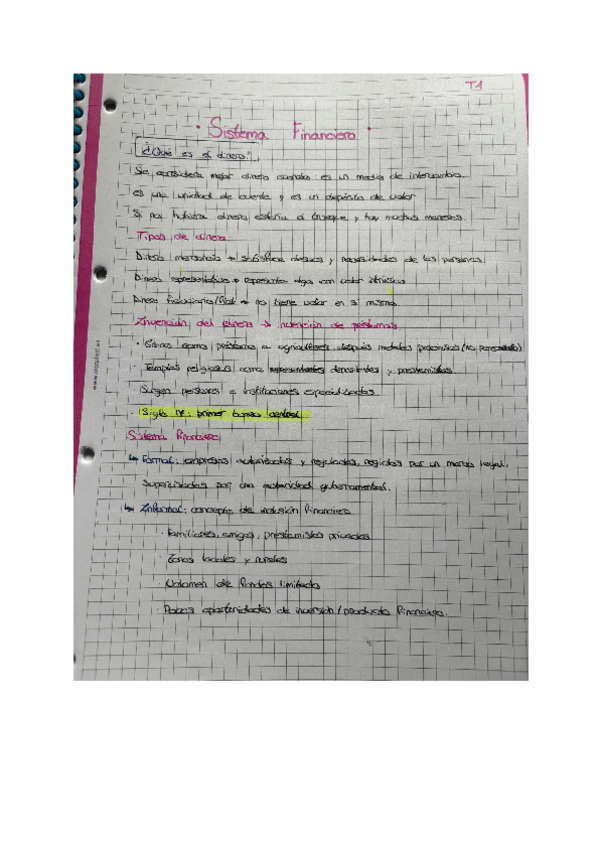 T1
· Sistema Financiero ·
¿Qué es el dinero?
Se considera mejor dinero cuando: es un medio de intercambio,
es una unidad de cuenta y es un depósito de valor
Si no hubiera dinero, estaría el trueque y hay muchas maneras.
Tipos de dinero:
Dinero mercancía → satisface deseos y necesidades de las personas.
Dinero representativo → representa algo con valor intrínseco
Dinero fiduciario/fiat → no tiene valor en sí mismo
Invención del dinero → invención de préstamos
· Granos como préstamo a agricultores, después metales preciosos (no perecedero)
· Templos religiosos como depositantes y prestamistas
Surgen personas e instituciones especializadas
Siglo : primer banco central.
Sistema Financiero
↳ Formal: empresas autorizadas y reguladas, regidas por un marco legal.
Supervisadas por una autoridad gubernamental.
↳ Informal: concepto de inclusión financiera
· Familiares, amigos, prestamistas privados
· Zonas locales y rurales
· Volumen de fondos limitado
· Pocas oportunidades de inversión/producto financiero.
www.oxfybel.es